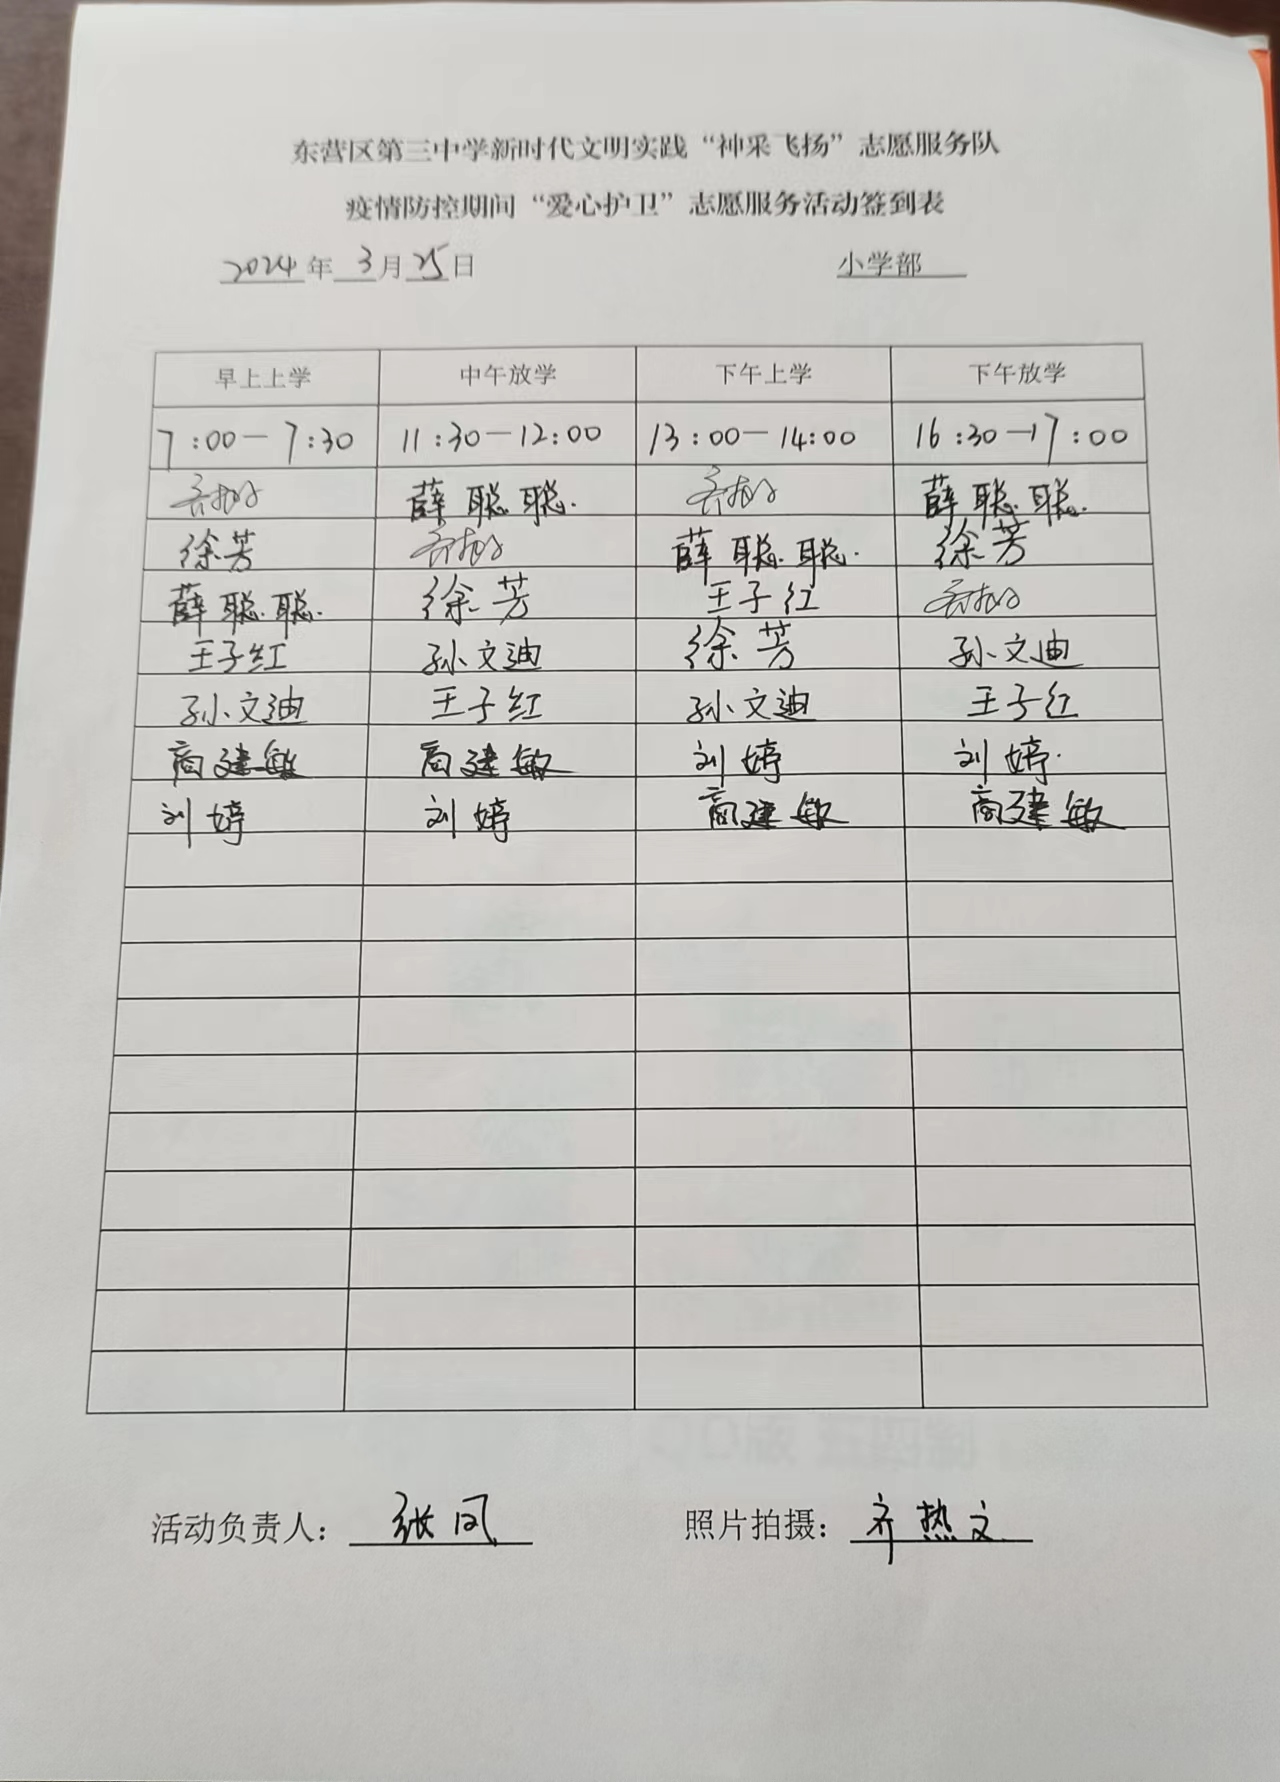 东营区第三中学新时代文明实践“神采飞扬”志愿服务队
疫情防控期间“爱心护卫”志愿服务活动签到表
2024年3月25日 小学部
早上上学 中午放学 下午上学 下午放学
7:00-7:30 11:30-12:00 13:00-14:00 16:30-17:00
薛聪聪 薛聪聪
徐芳 薛聪聪 徐芳
薛聪聪 徐芳 王子红
王子红 孙文迪 徐芳 孙文迪
孙文迪 王子红 孙文迪 王子红
商建敏 商建敏 刘婷 刘婷
刘婷 刘婷 商建敏 商建敏
活动负责人：张凤 照片拍摄：齐热文